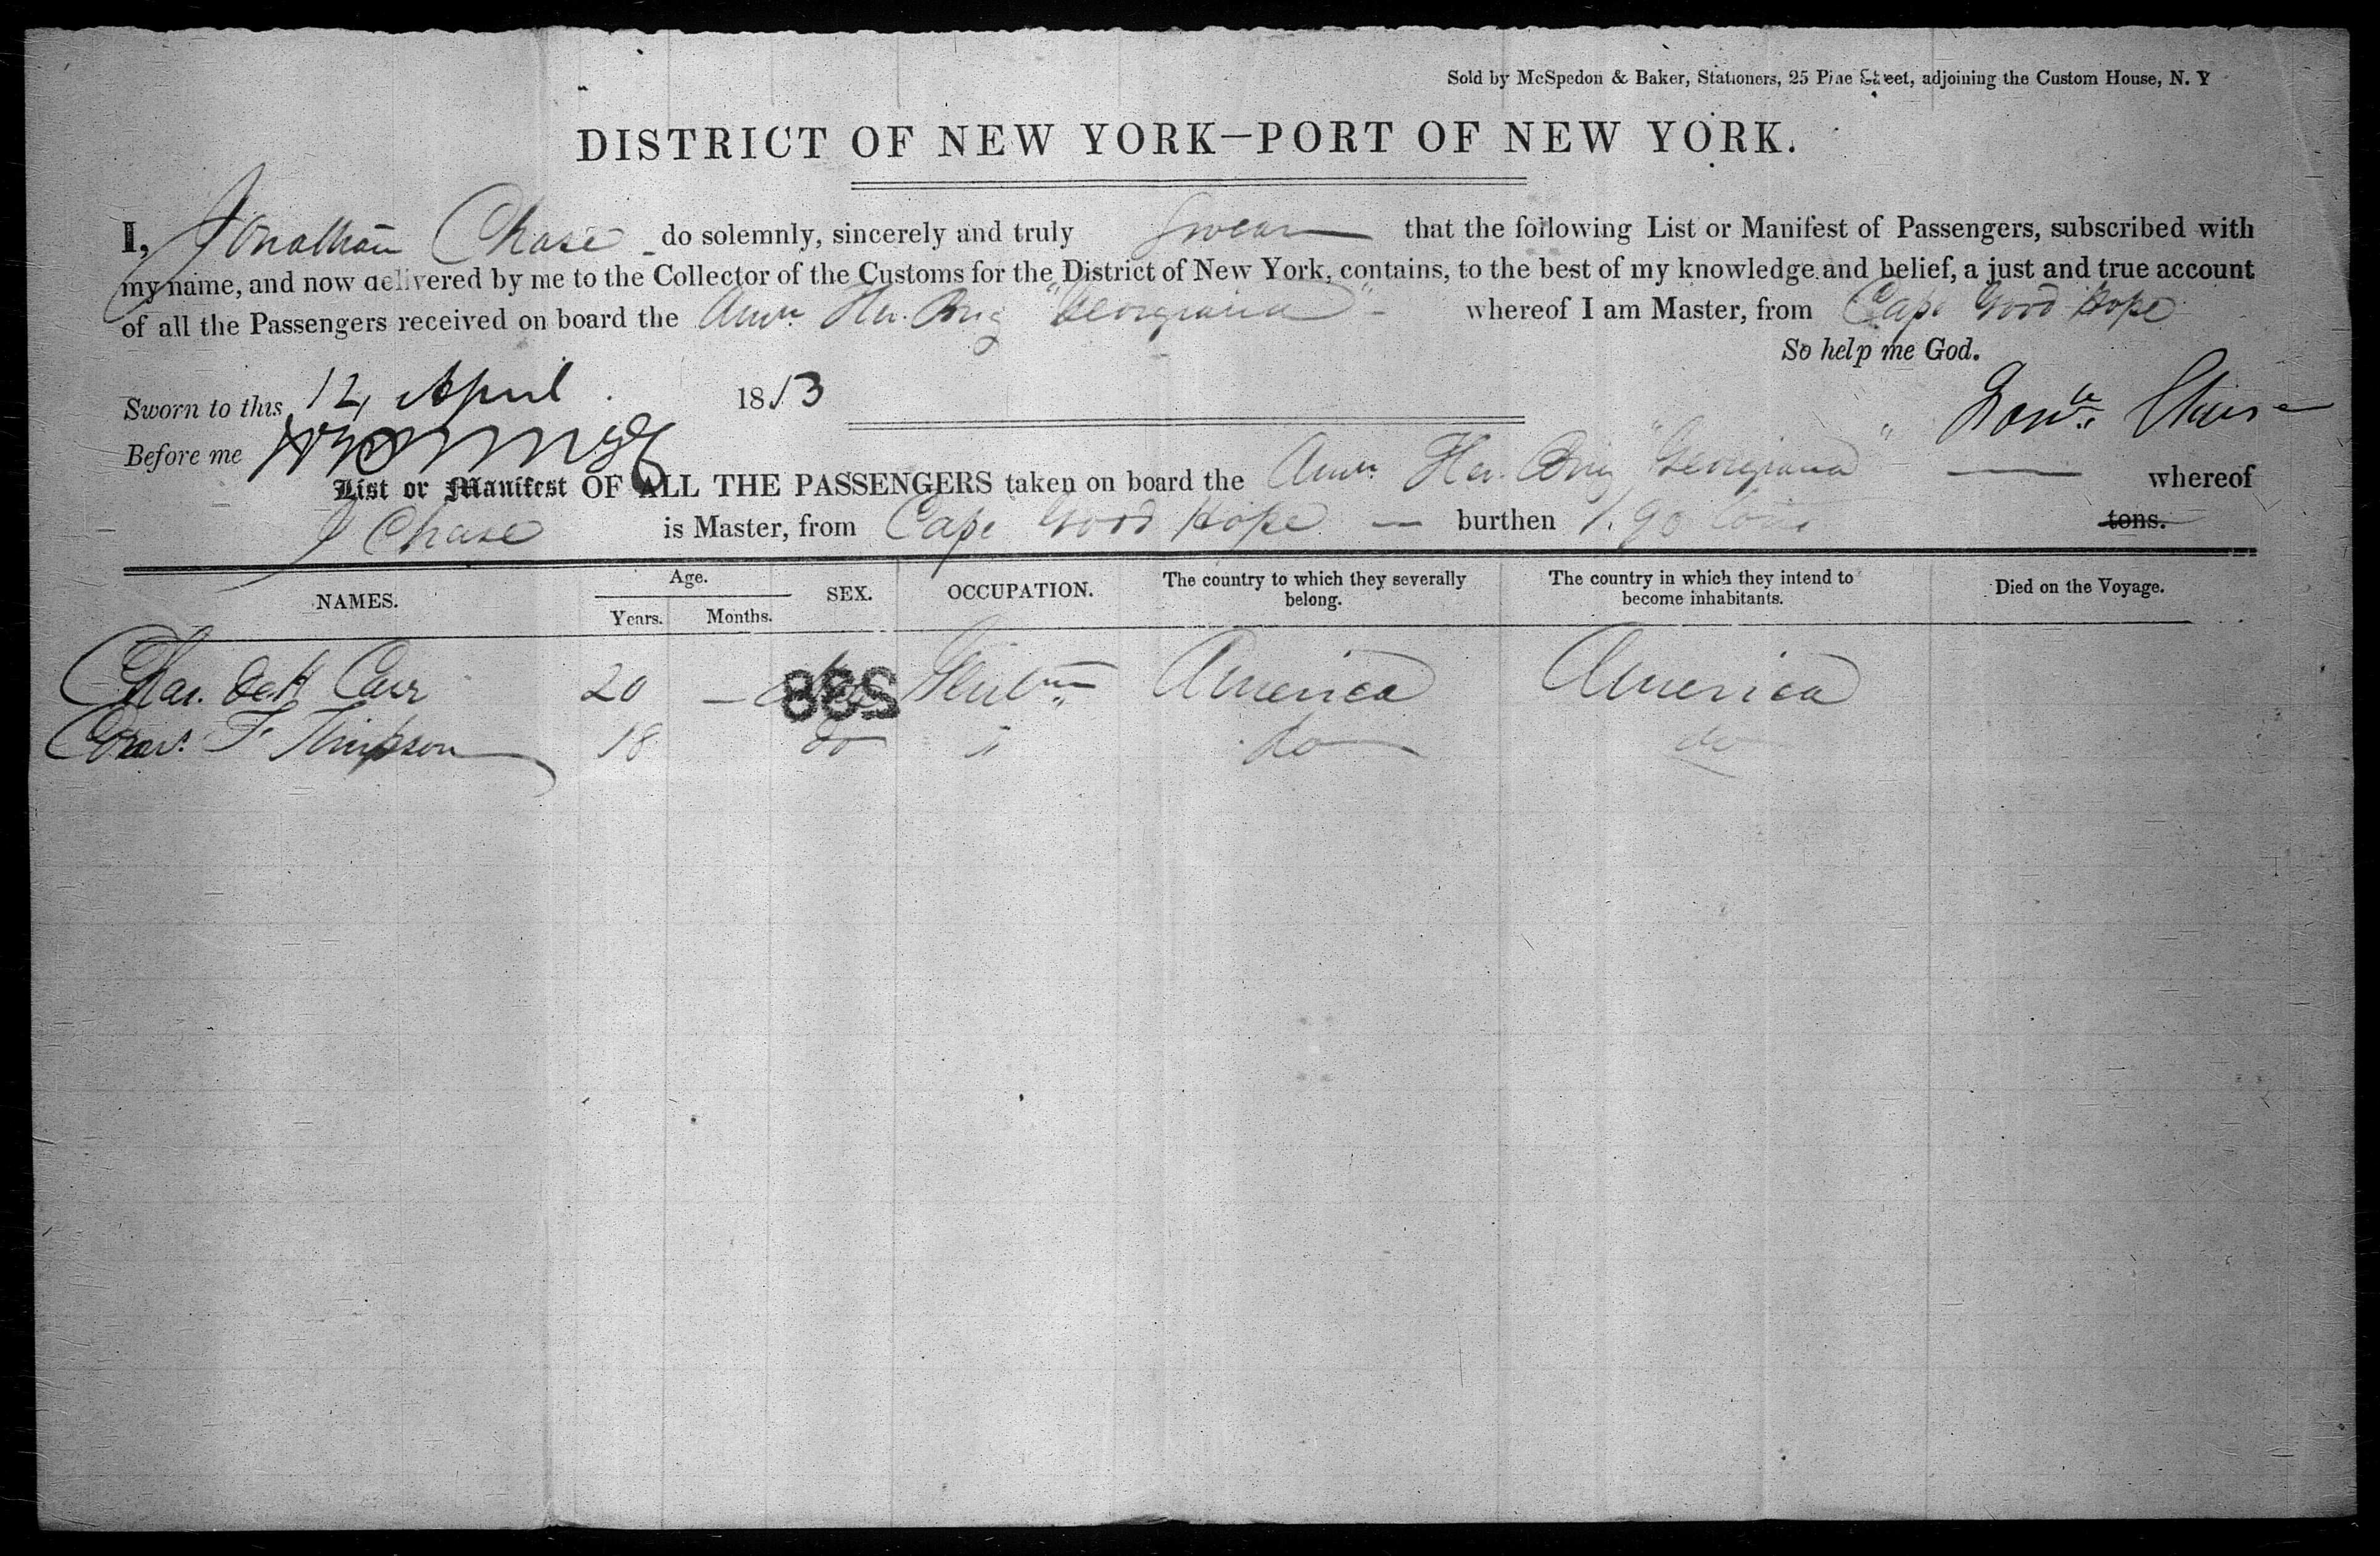 Sold by McSpedon & Baker, Stationers, 25 Pine Street, adjoining the Custom House, N. Y
DISTRICT OF NEW YORK—PORT OF NEW YORK.
I, Jonathan Chase do solemnly, sincerely and truly Swear that the following List or Manifest of Passengers, subscribed with
my name, and now delivered by me to the Collector of the Customs for the District of New York, contains, to the best of my knowledge and belief, a just and true account
of all the Passengers received on board the Amn. Her. Brig "Georgiana" whereof I am Master, from Cape Good Hope
So help me God.
Sworn to this 12, April 1853
Jona. Chase
Before me
List or Manifest OF ALL THE PASSENGERS taken on board the Amn. Her. Brig "Georgiana" — whereof
J Chase is Master, from Cape Good Hope — burthen 190 tons tons.
NAMES. Age. Years. Months. SEX. OCCUPATION. The country to which they severally belong. The country in which they intend to become inhabitants. Died on the Voyage.
Chas. DeH Carr 20 — 538 Gentmn America America
F Timpson 18 do " do do